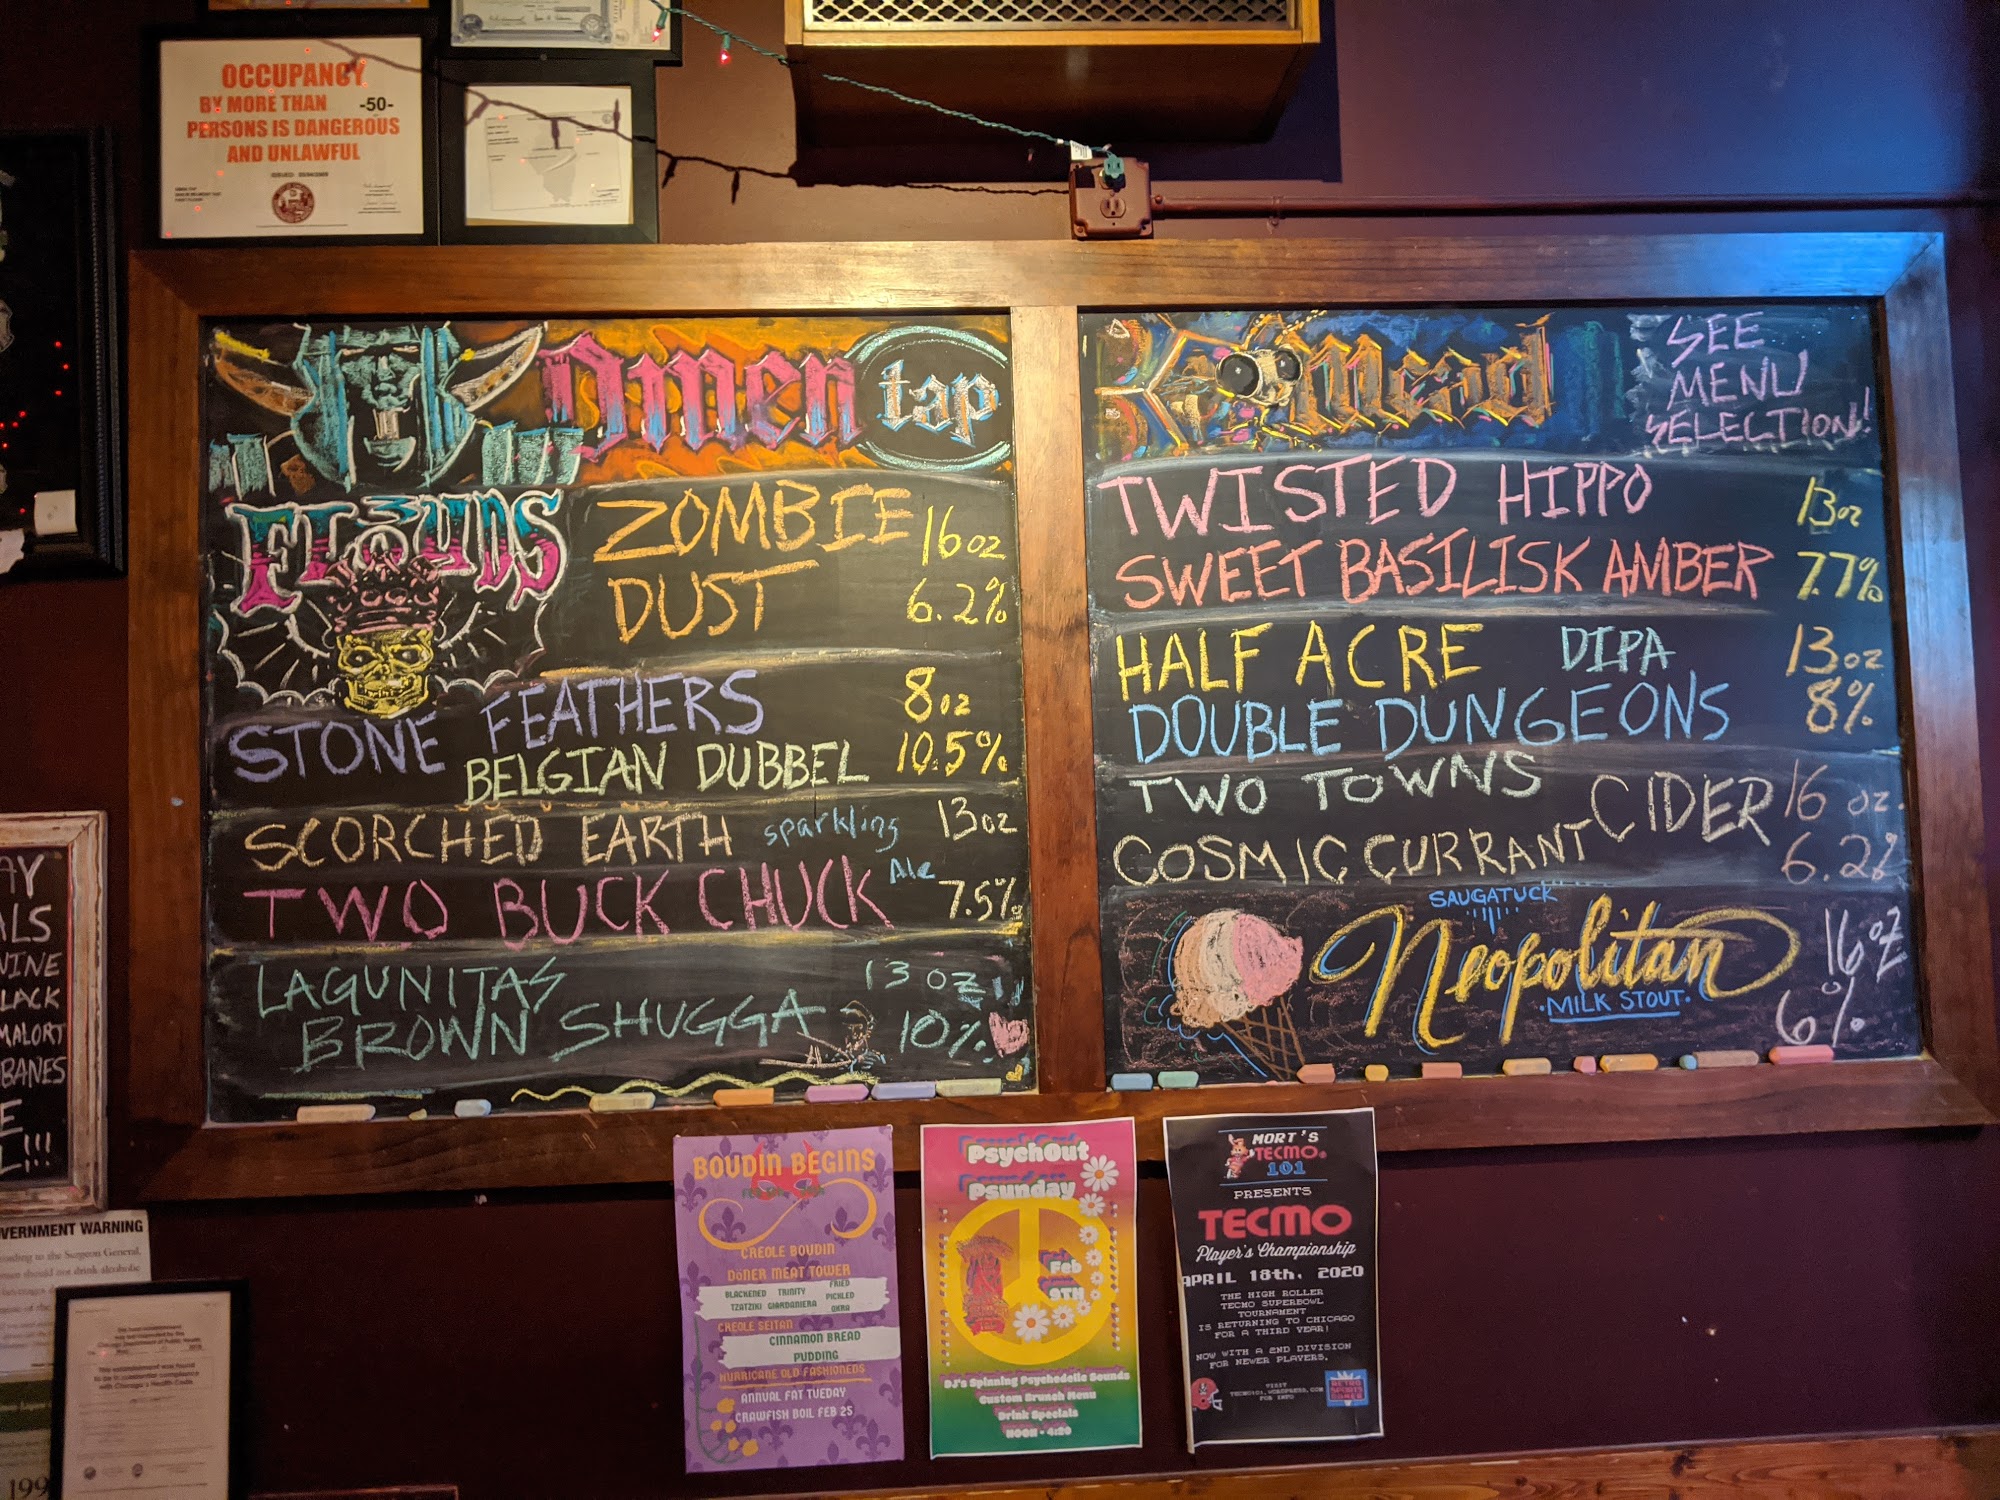 OCCUPANCY
BY MORE THAN -50-
PERSONS IS DANGEROUS
AND UNLAWFUL
Omen tap
FLOYDS
3
ZOMBIE
DUST
16oz
6.2%
STONE FEATHERS
BELGIAN DUBBEL
8oz
10.5%
SCORCHED EARTH sparkling
TWO BUCK CHUCK Ale
13oz
7.5%
LAGUNITAS
BROWN SHUGGA
13oz
10%
Mead
SEE
MENU
SELECTION!
TWISTED HIPPO
SWEET BASILISK AMBER
13oz
7.7%
HALF ACRE DIPA
DOUBLE DUNGEONS
13oz
8%
TWO TOWNS CIDER
COSMIC CURRANT
16 oz.
6.2%
SAUGATUCK
Neopolitan
·MILK STOUT·
16oz
6%
AY
ALS
WINE
LACK
MALORT
BANES
E
L!!!
VERNMENT WARNING
ording to the Surgeon General,
men should not drink alcoholic
199
BOUDIN BEGINS
CREOLE BOUDIN
DöNER MEAT TOWER
BLACKENED TRINITY FRIED
TZATZIKI GIARDANIERA PICKLED
OKRA
CREOLE SEITAN
CINNAMON BREAD
PUDDING
HURRICANE OLD FASHIONEDS
ANNUAL FAT TUEDAY
CRAWFISH BOIL FEB 25
PsychOut
Psunday
Feb
9TH
DJ's Spinning Psychedelic Sounds
Custom Brunch Menu
Drink Specials
NOON - 4:20
MORT'S
TECMO
101
PRESENTS
TECMO
Player's Championship
APRIL 18th, 2020
THE HIGH ROLLER
TECMO SUPERBOWL
TOURNAMENT
IS RETURNING TO CHICAGO
FOR A THIRD YEAR!
NOW WITH A 2ND DIVISION
FOR NEWER PLAYERS.
VISIT
TECMO101.WORDPRESS.COM
FOR INFO
RETRO
SPORTS
GAMER